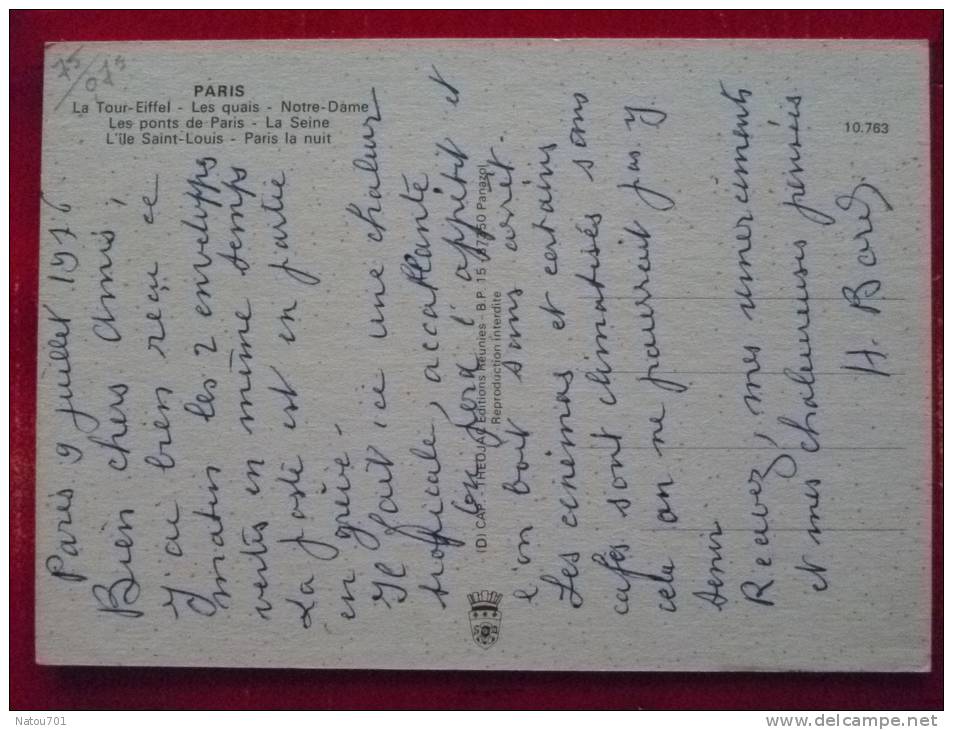 75/075
PARIS
La Tour-Eiffel - Les quais - Notre-Dame
Les ponts de Paris - La Seine
L'île Saint-Louis - Paris la nuit
10.763
Paris 9 juillet 1976
Bien chers amis,
J'ai bien reçu ce
matin les 2 enveloppes
vertes en même temps
La poste est en partie
en grève.
Il fait ici une chaleur
tropicale, accablante
on perd l'appétit et
l'on boit sans arrêt.
Les cinémas et certains
cafés sont climatisés sans
cela on ne pourrait pas y
tenir
Recevez, mes remerciements
et mes chaleureuses pensées
H. Bord
IDI CAP - THEOJAC Editions Réunies - B.P. 15 - 87350 Panazol
Reproduction interdite
Natou701
www.delcampe.net